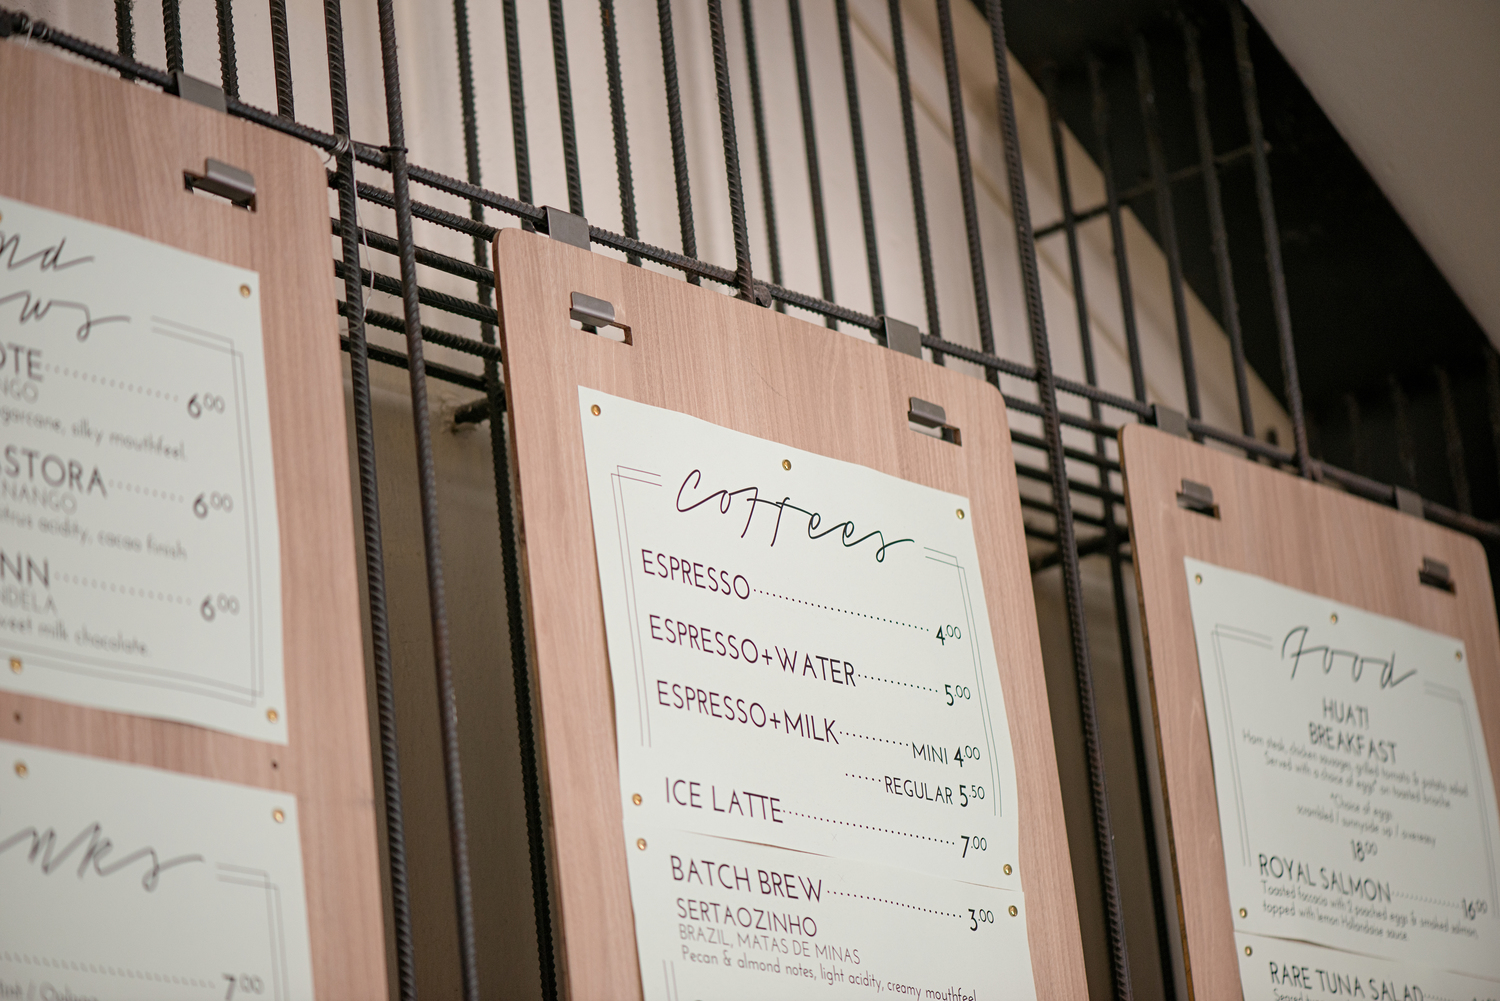 6.00
silky mouthfeel.
6.00
acidity, cacao finish
6.00
milk chocolate.
7.00
Coffees
ESPRESSO 4.00
ESPRESSO+WATER 5.00
ESPRESSO+MILK MINI 4.00
REGULAR 5.50
ICE LATTE 7.00
BATCH BREW 3.00
SERTAOZINHO
BRAZIL, MATAS DE MINAS
Pecan & almond notes, light acidity, creamy mouthfeel
Food
HUATI
BREAKFAST
Ham steak, chicken sausages, grilled tomato & potato salad.
Served with a choice of eggs* on toasted brioche
*Choice of eggs:
scrambled / sunnyside up / overeasy
18.00
ROYAL SALMON 16.00
Toasted foccacia with 2 poached eggs & smoked salmon,
topped with lemon Hollandaise sauce.
RARE TUNA SALAD